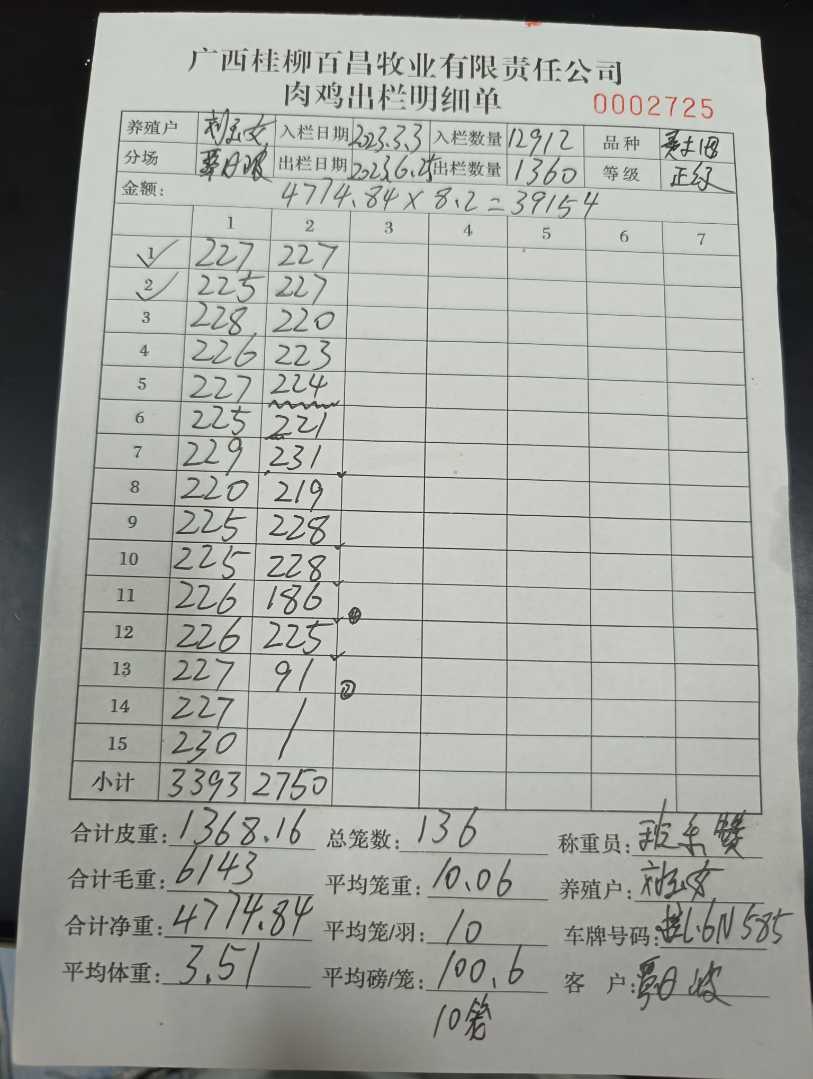 广西桂柳百昌牧业有限责任公司
肉鸡出栏明细单 0002725
养殖户 刘玉女 入栏日期 2023.3.3 入栏数量 12912 品种
分场 出栏日期 2023.6.25 出栏数量 1360 等级 正红
金额: 4774.84 × 8.2 = 39154
1 2 3 4 5 6 7
1 227 227
2 225 227
3 228 220
4 226 223
5 227 224
6 225 221
7 229 231
8 220 219
9 225 228
10 225 228
11 226 186
12 226 225
13 227 91
14 227 /
15 230
小计 3393 2750
合计皮重: 1368.16 总笼数: 136 称重员:
合计毛重: 6143 平均笼重: 10.06 养殖户: 刘玉女
合计净重: 4774.84 平均笼/羽: 10 车牌号码: 桂L.6N585
平均体重: 3.51 平均磅/笼: 100.6 客 户:
10笼